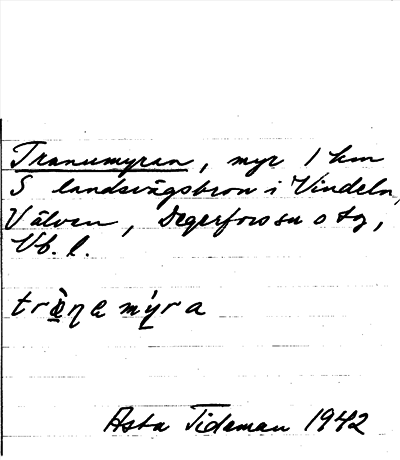 Tranumyran, myr 1 km
S landsvägsbron i Vindeln,
Välven, Degerfors sn o tg,
Vb. l.
Asta Tideman 1942